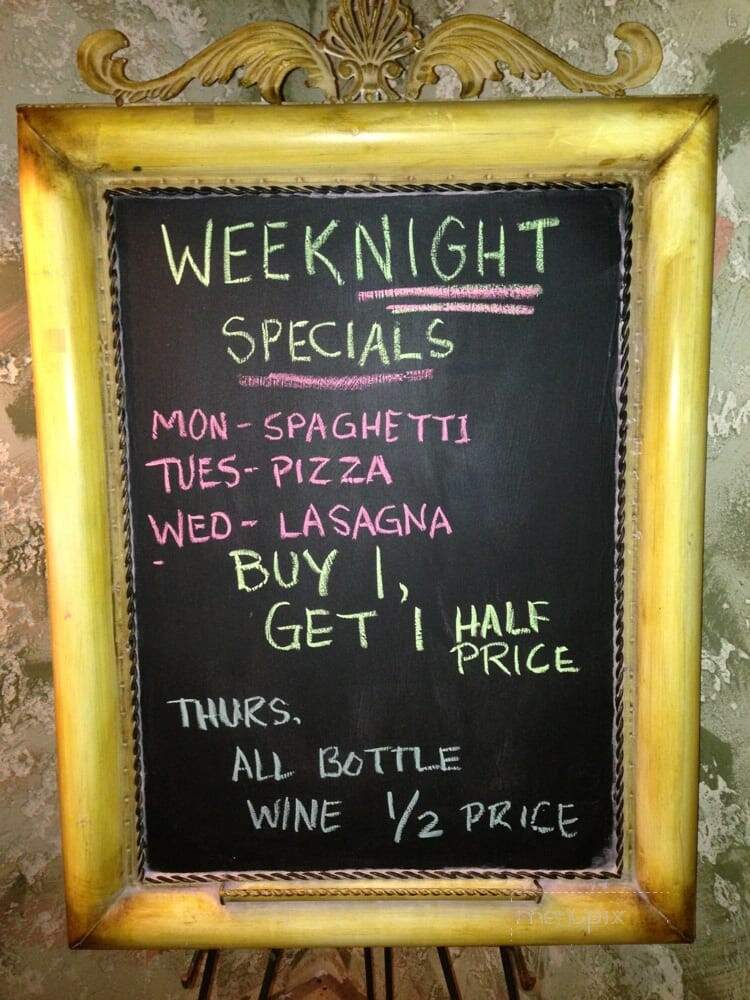 WEEKNIGHT
SPECIALS
MON - SPAGHETTI
TUES - PIZZA
WED - LASAGNA
BUY 1,
GET 1 HALF
PRICE
THURS.
ALL BOTTLE
WINE 1/2 PRICE
menupix